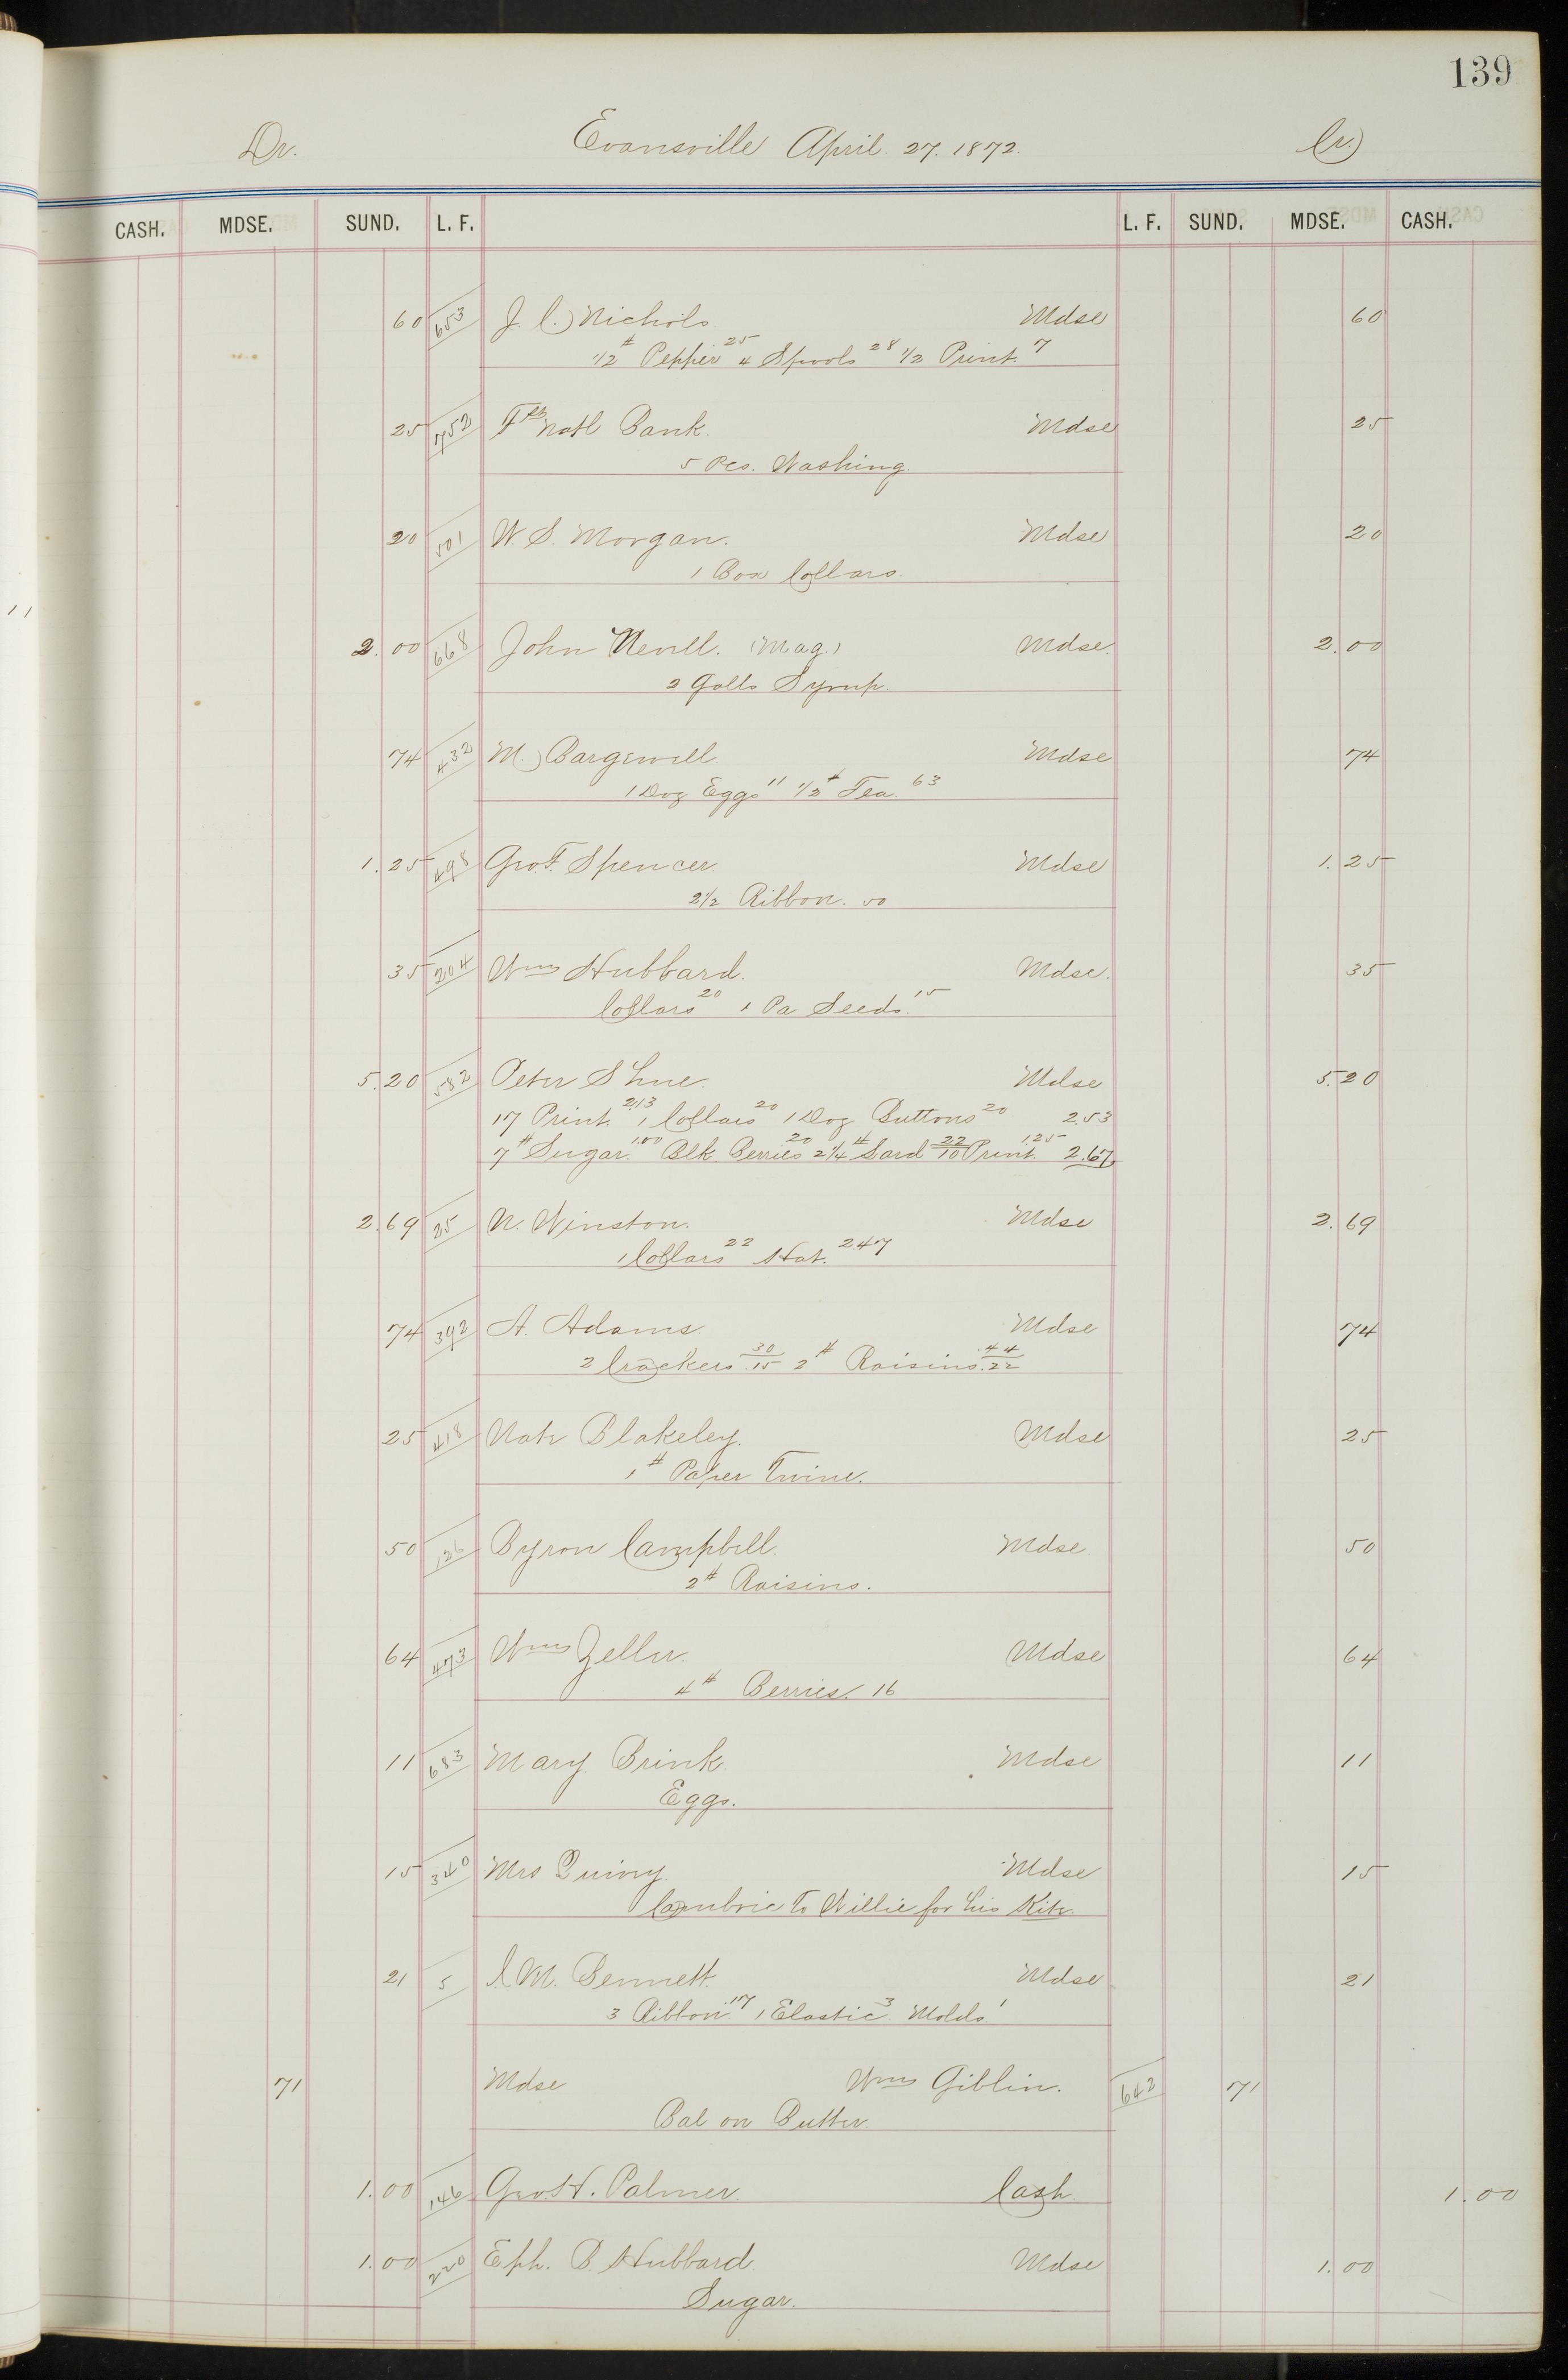 139
Dr. Evansville April 27. 1872. Cr.
CASH. MDSE. SUND. L. F. L. F. SUND. MDSE. CASH.
60 653 J. C. Nichols Mdse 60
1/2 # Pepper 25 4 Spools 28 1/2 Print. 7
25 752 Natl Bank. Mdse 25
5 Pcs. Washing.
20 501 W. S. Morgan. Mdse 20
1 Box Collars.
2.00 668 John Nevill. (Mag.) Mdse. 2.00
2 Galls Syrup.
74 432 M. Mdse 74
1 Doz Eggs 11 1/2 # Tea. 63
1.25 498 Geo. F. Spencer. Mdse 1.25
2 1/2 Ribbon. 50
35 204 Wm Hubbard. Mdse. 35
Collars 20 1 Pa Seeds. 15
5.20 582 Peter Mdse 5.20
17 Print. 2.13 1 Collars 20 1 Doz Buttons 20 2.53
7 # Sugar. 1.00 Blk. Berries 20 2 1/4 # Lard 22/10 Print. 1.25 2.67
2.69 25 N. Winston. Mdse 2.69
1 Collars 22 Hat. 247
74 392 A. Adams. Mdse 74
2 Crackers 30/.15 2 # Raisins .44/.22
25 418 Nate Blakeley. Mdse 25
1 # Paper Twine.
50 126 Byron Campbell. Mdse. 50
2 # Raisins.
64 473 Wm Zeller. Mdse 64
4 # Berries. 16
11 683 Mary Brink. Mdse 11
Eggs.
15 340 Mrs Quivey. Mdse 15
Cambric to Willie for his Kite.
21 5 C. M. Bennett. Mdse 21
3 Ribbon .17 1 Elastic 3 Molds. 1
71 Mdse Wm Giblin. 642 71
Bal on Butter.
1.00 146 Geo. H. Palmer. Cash. 1.00
1.00 220 Eph. B. Hubbard Mdse 1.00
Sugar.
11